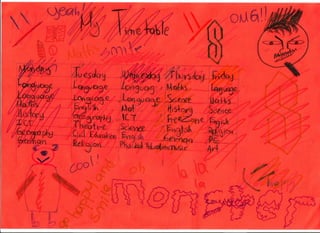 yeah
OMG!!
My Timetable
Maths
smile
Monday Tuesday Wednesday Thursday Friday
Language Language Language Maths Language
Language Language Language Science Maths
Maths English Met History Science
History Geography ICT Free Zone English
ICT Theatre Science English Religion
Geography Civil Education English German PE
German Religion Physical Education music Art
cool!
go happy and smile
oh
la
la
monster